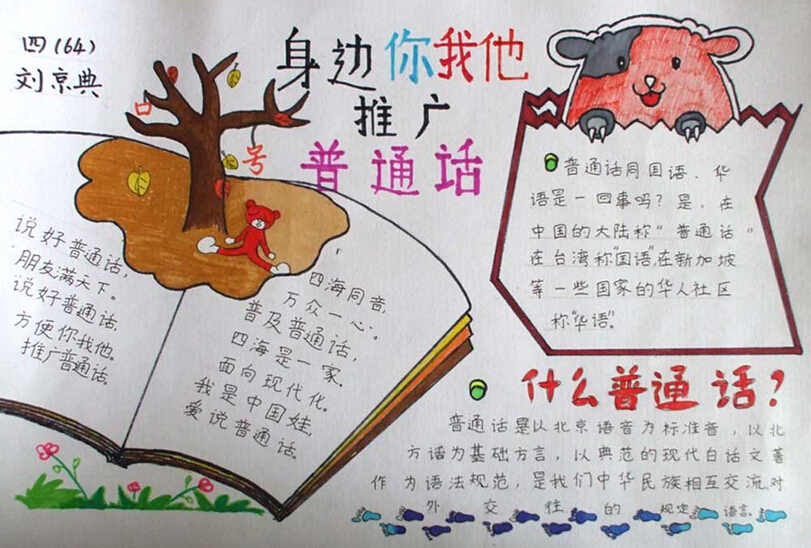 四(64)
刘京典
身边你我他
推广
普通话
口
号
说好普通话,
朋友满天下。
说好普通话,
方便你我他。
推广普通话。
四海同音,
万众一心。
普及普通话,
四海是一家。
面向现代化。
我是中国娃,
爱说普通话。
普通话同国语、华
语是一回事吗?是,在
中国的大陆称“普通话”
在台湾称“国语”,在新加坡
等一些国家的华人社区
称“华语”。
什么普通话?
普通话是以北京语音为标准音,以北
方话为基础方言,以典范的现代白话文著
作为语法规范,是我们中华民族相互交流,对
外交往的规定语言。